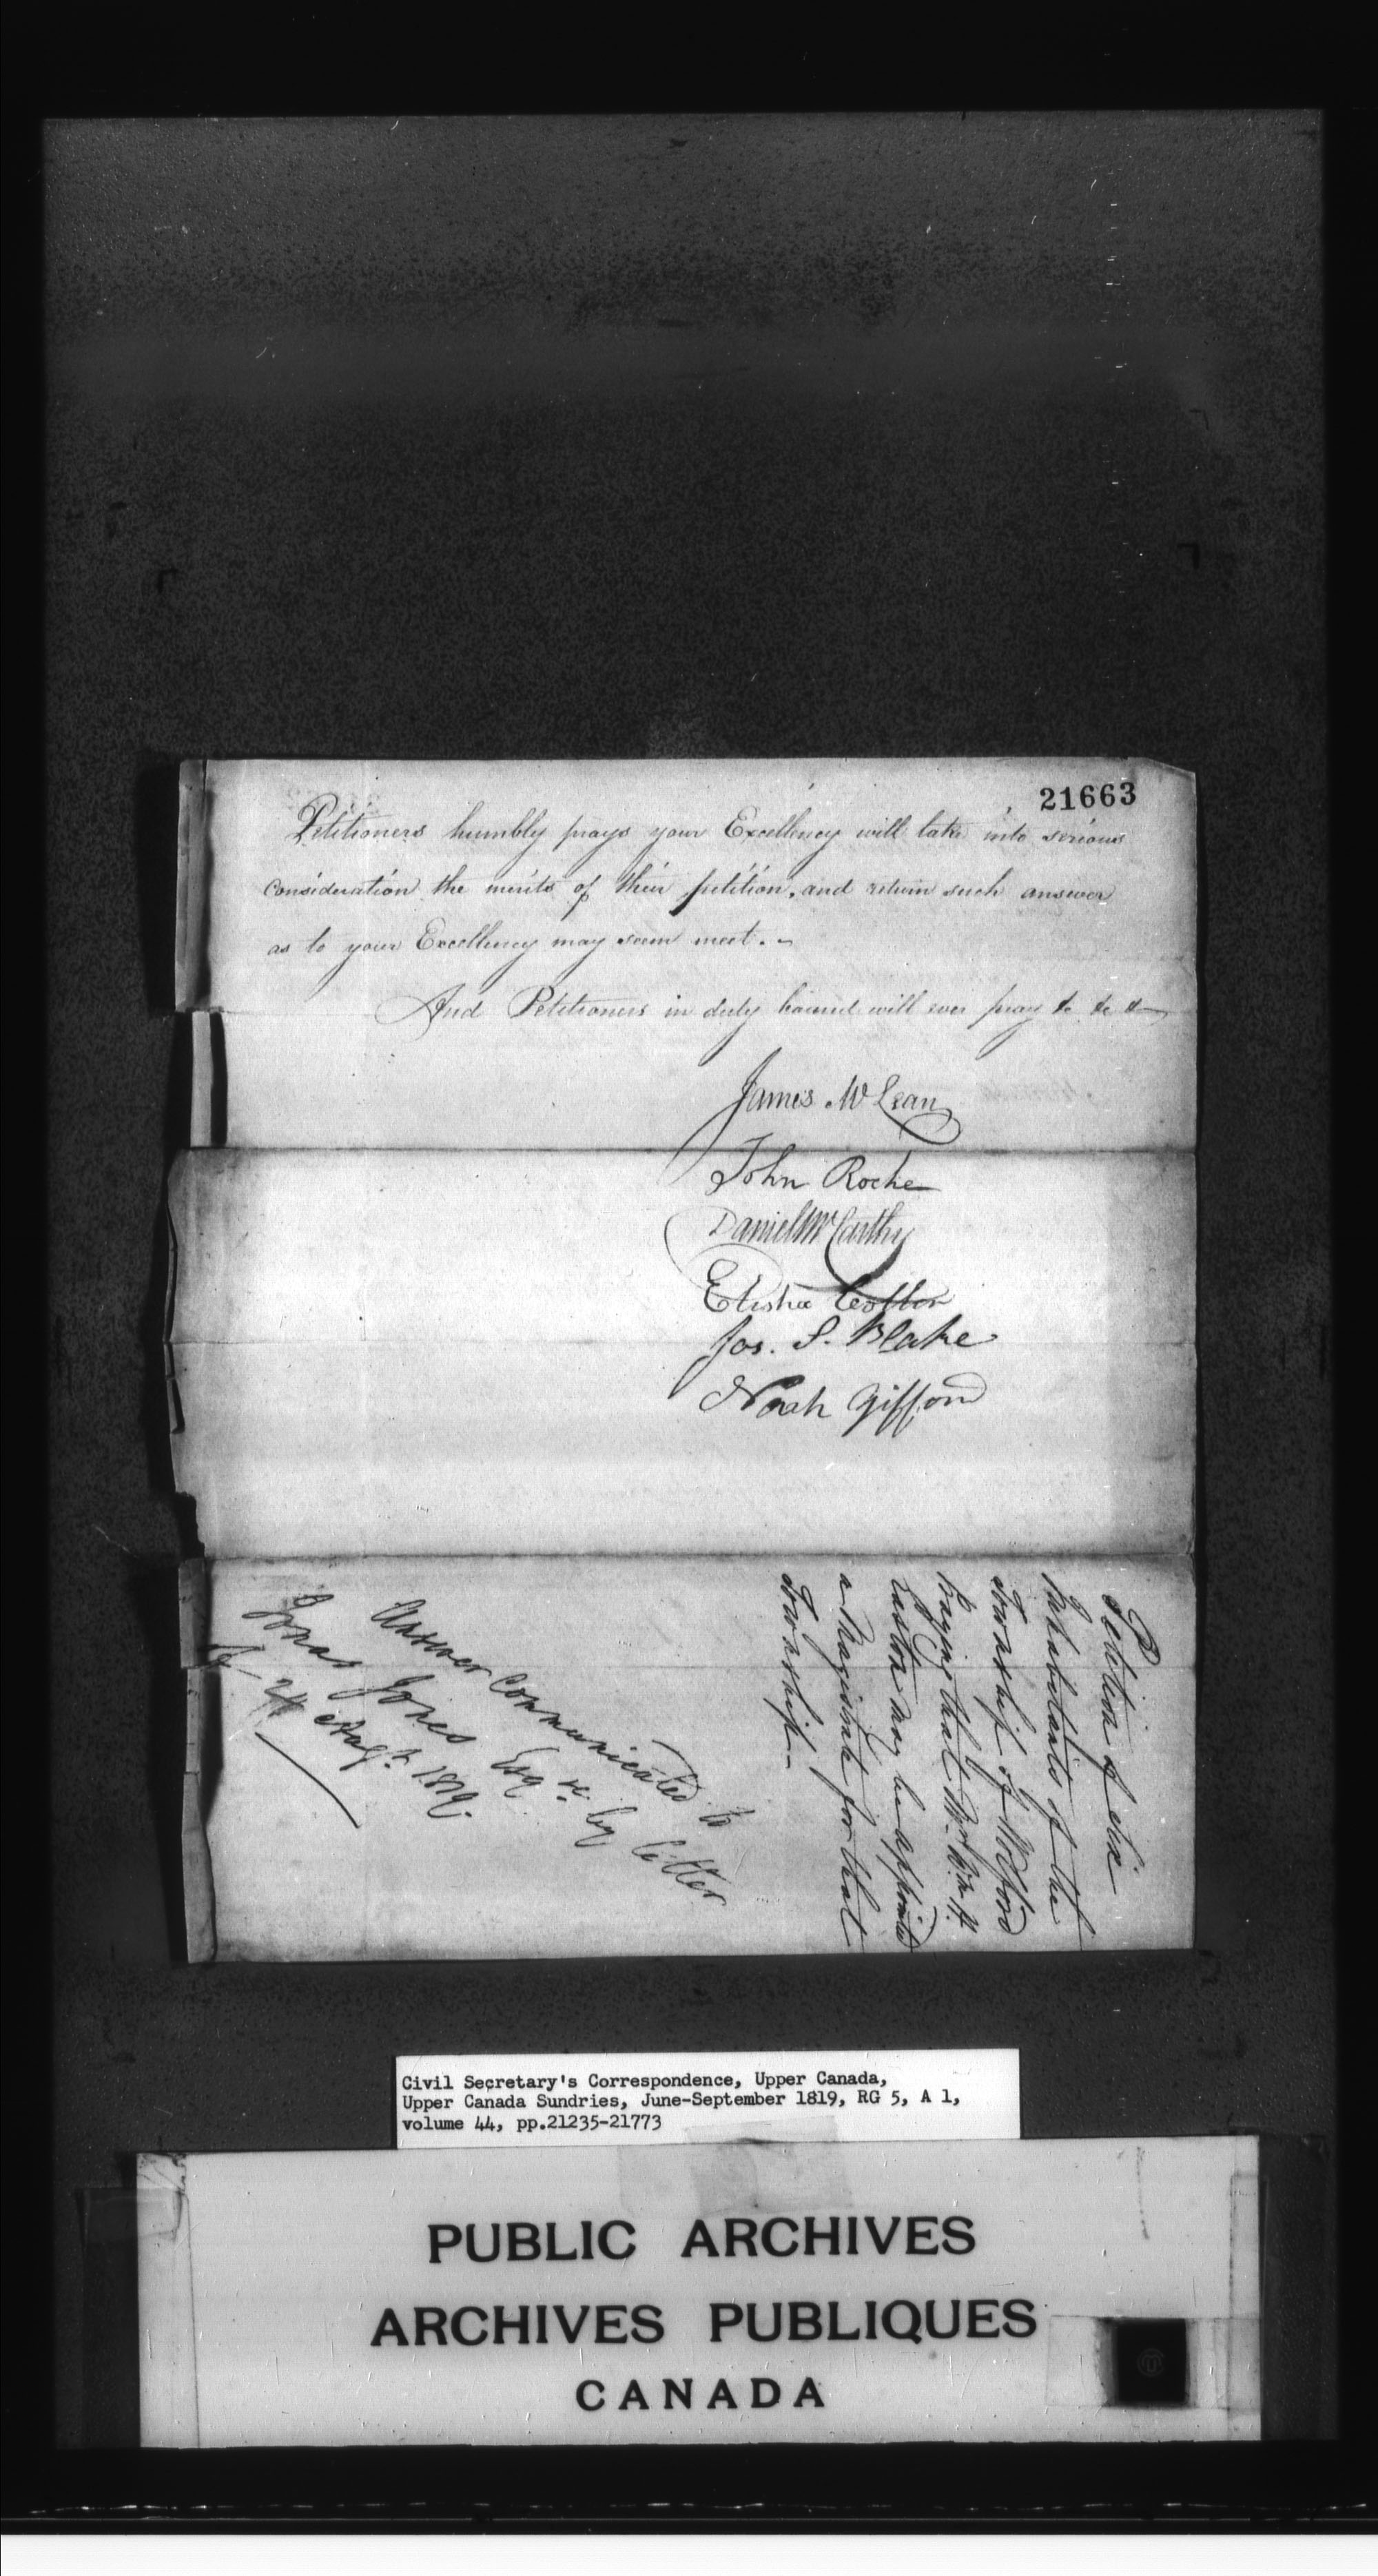 21663
Petitioners humbly prays your Excellency will take into serious
consideration the merits of their petition, and return such answer
as to your Excellency may seem meet. -
And Petitioners in duty bound will ever pray &c &c &c
James McLean
John Roche
Daniel McCarthy
Elisha Collin
Jos. S. Blake
Noah Gifford
Petition of six
Inhabitants of the
Township of Wolford
Praying that Mr. Wm. H.
Easton may be appointed
a Magistrate for that
Township -
Answer Communicated to
Jonas Jones Esqre. by letter
24 Augt. 1819.
Civil Secretary's Correspondence, Upper Canada,
Upper Canada Sundries, June-September 1819, RG 5, A 1,
volume 44, pp.21235-21773
PUBLIC ARCHIVES
ARCHIVES PUBLIQUES
CANADA